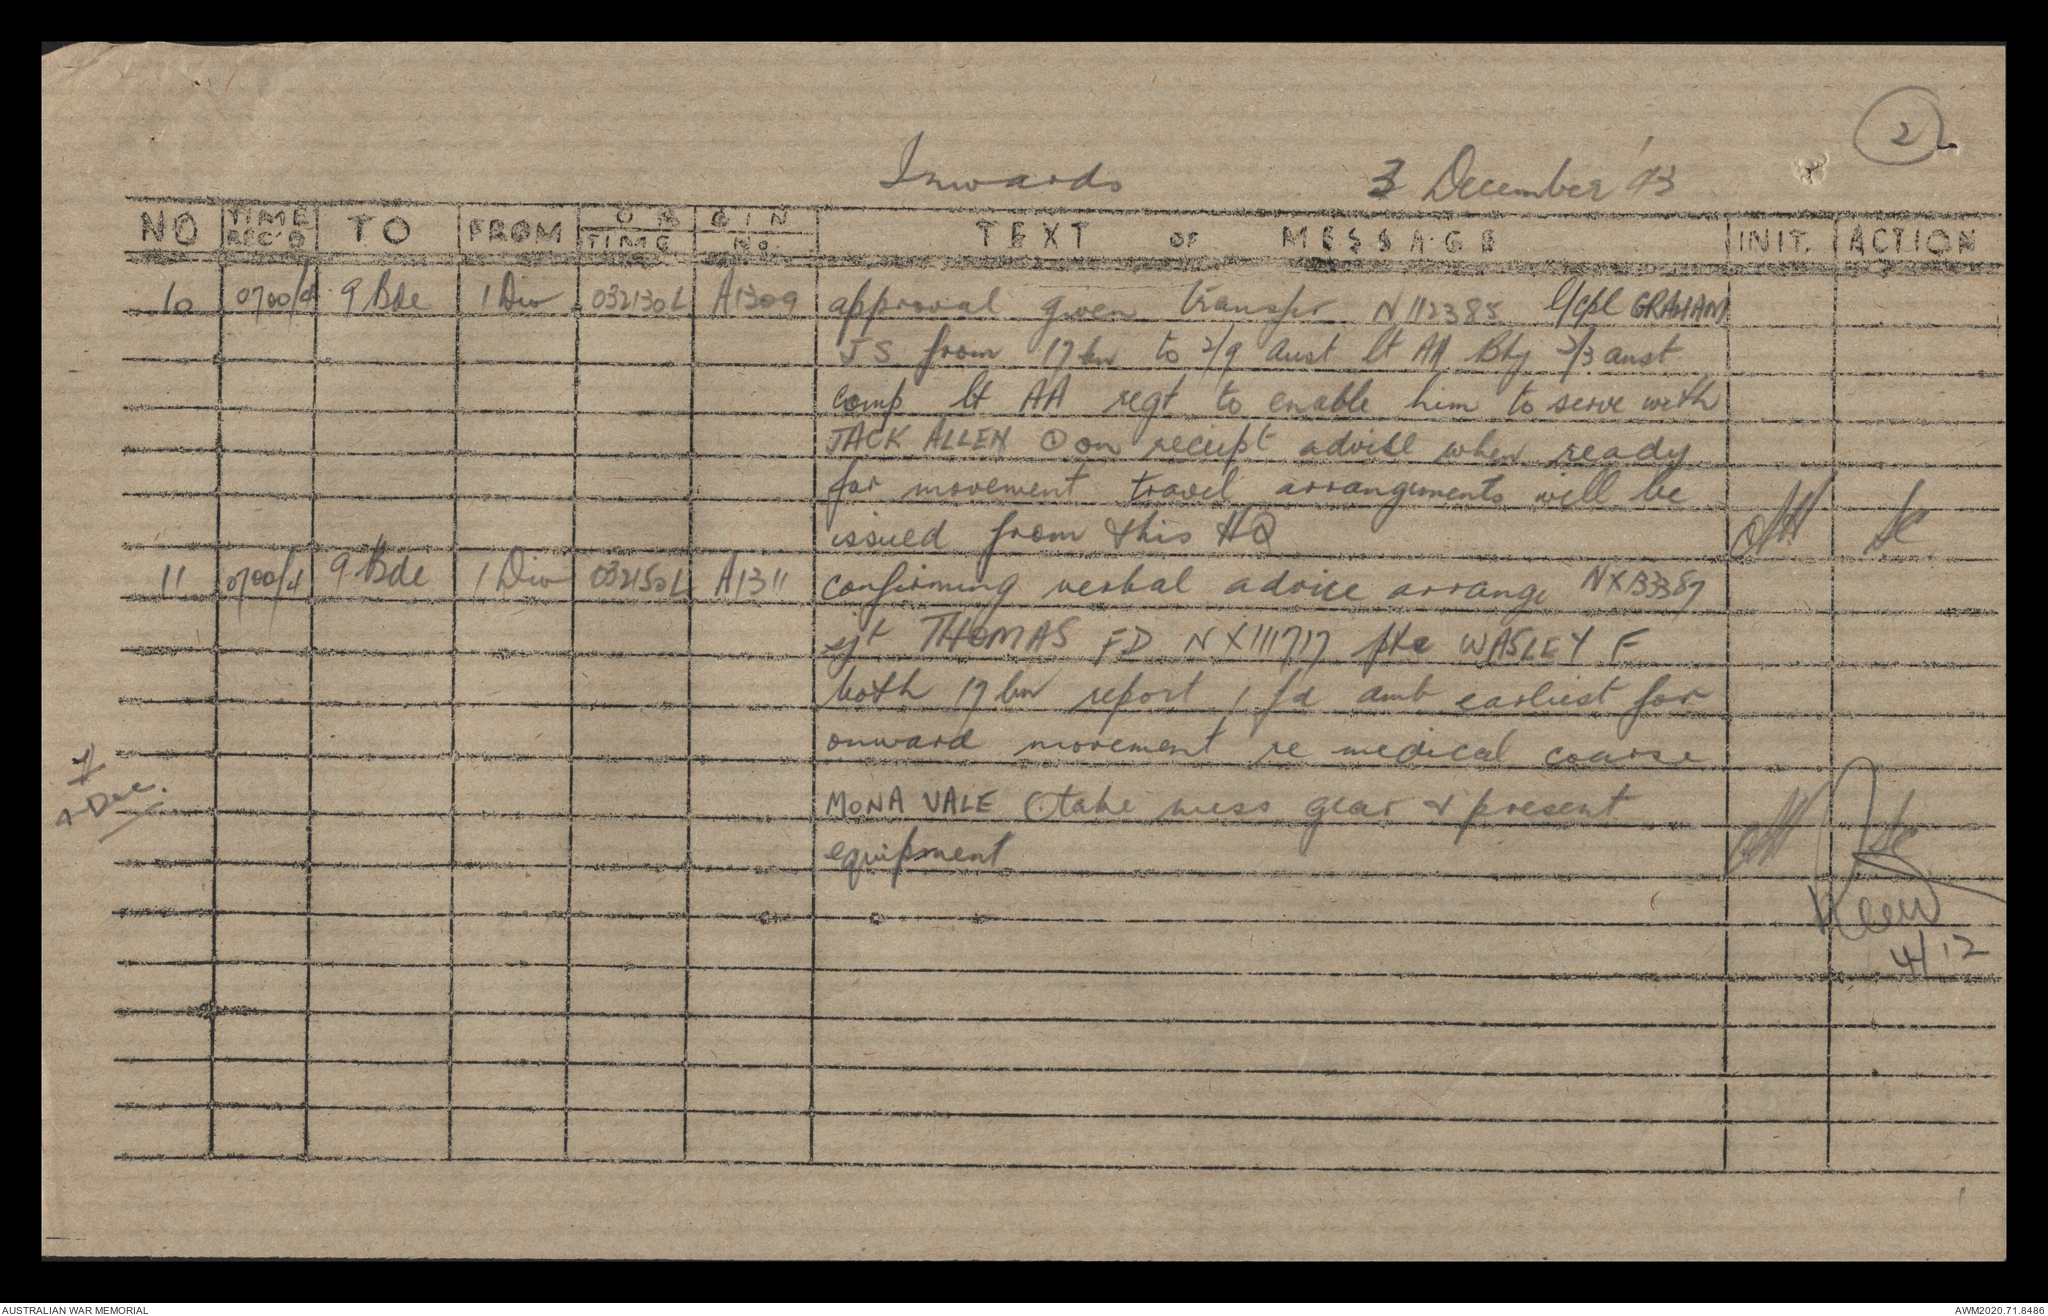 2
Inwards 3 December '43
NO TIME REC'D TO FROM ORIGIN TIME No TEXT OF MESSAGE INIT. ACTION
10 0700/4 9 Bde 1 Div 032130L A1309 approval given transfer N112385 l/cpl GRAHAM
JS from 17 bn to 2/9 aust lt AA Bty 2/3 aust
comp lt AA regt to enable him to serve with
JACK ALLEN ① on reciept advise when ready
for movement travel arrangements will be
issued from this HQ SC
11 0700/4 9 Bde 1 Div 032150L A1311 confirming verbal advice arrange NX133387
sjt THOMAS FD NX111717 pte WASLEY F
both 17 bn report 1 fd amb earliest for
onward movement re medical coarse
MONA VALE ① take mess gear & present
equipment SC
4 Dec.
4/12
AUSTRALIAN WAR MEMORIAL AWM2020.71.8486